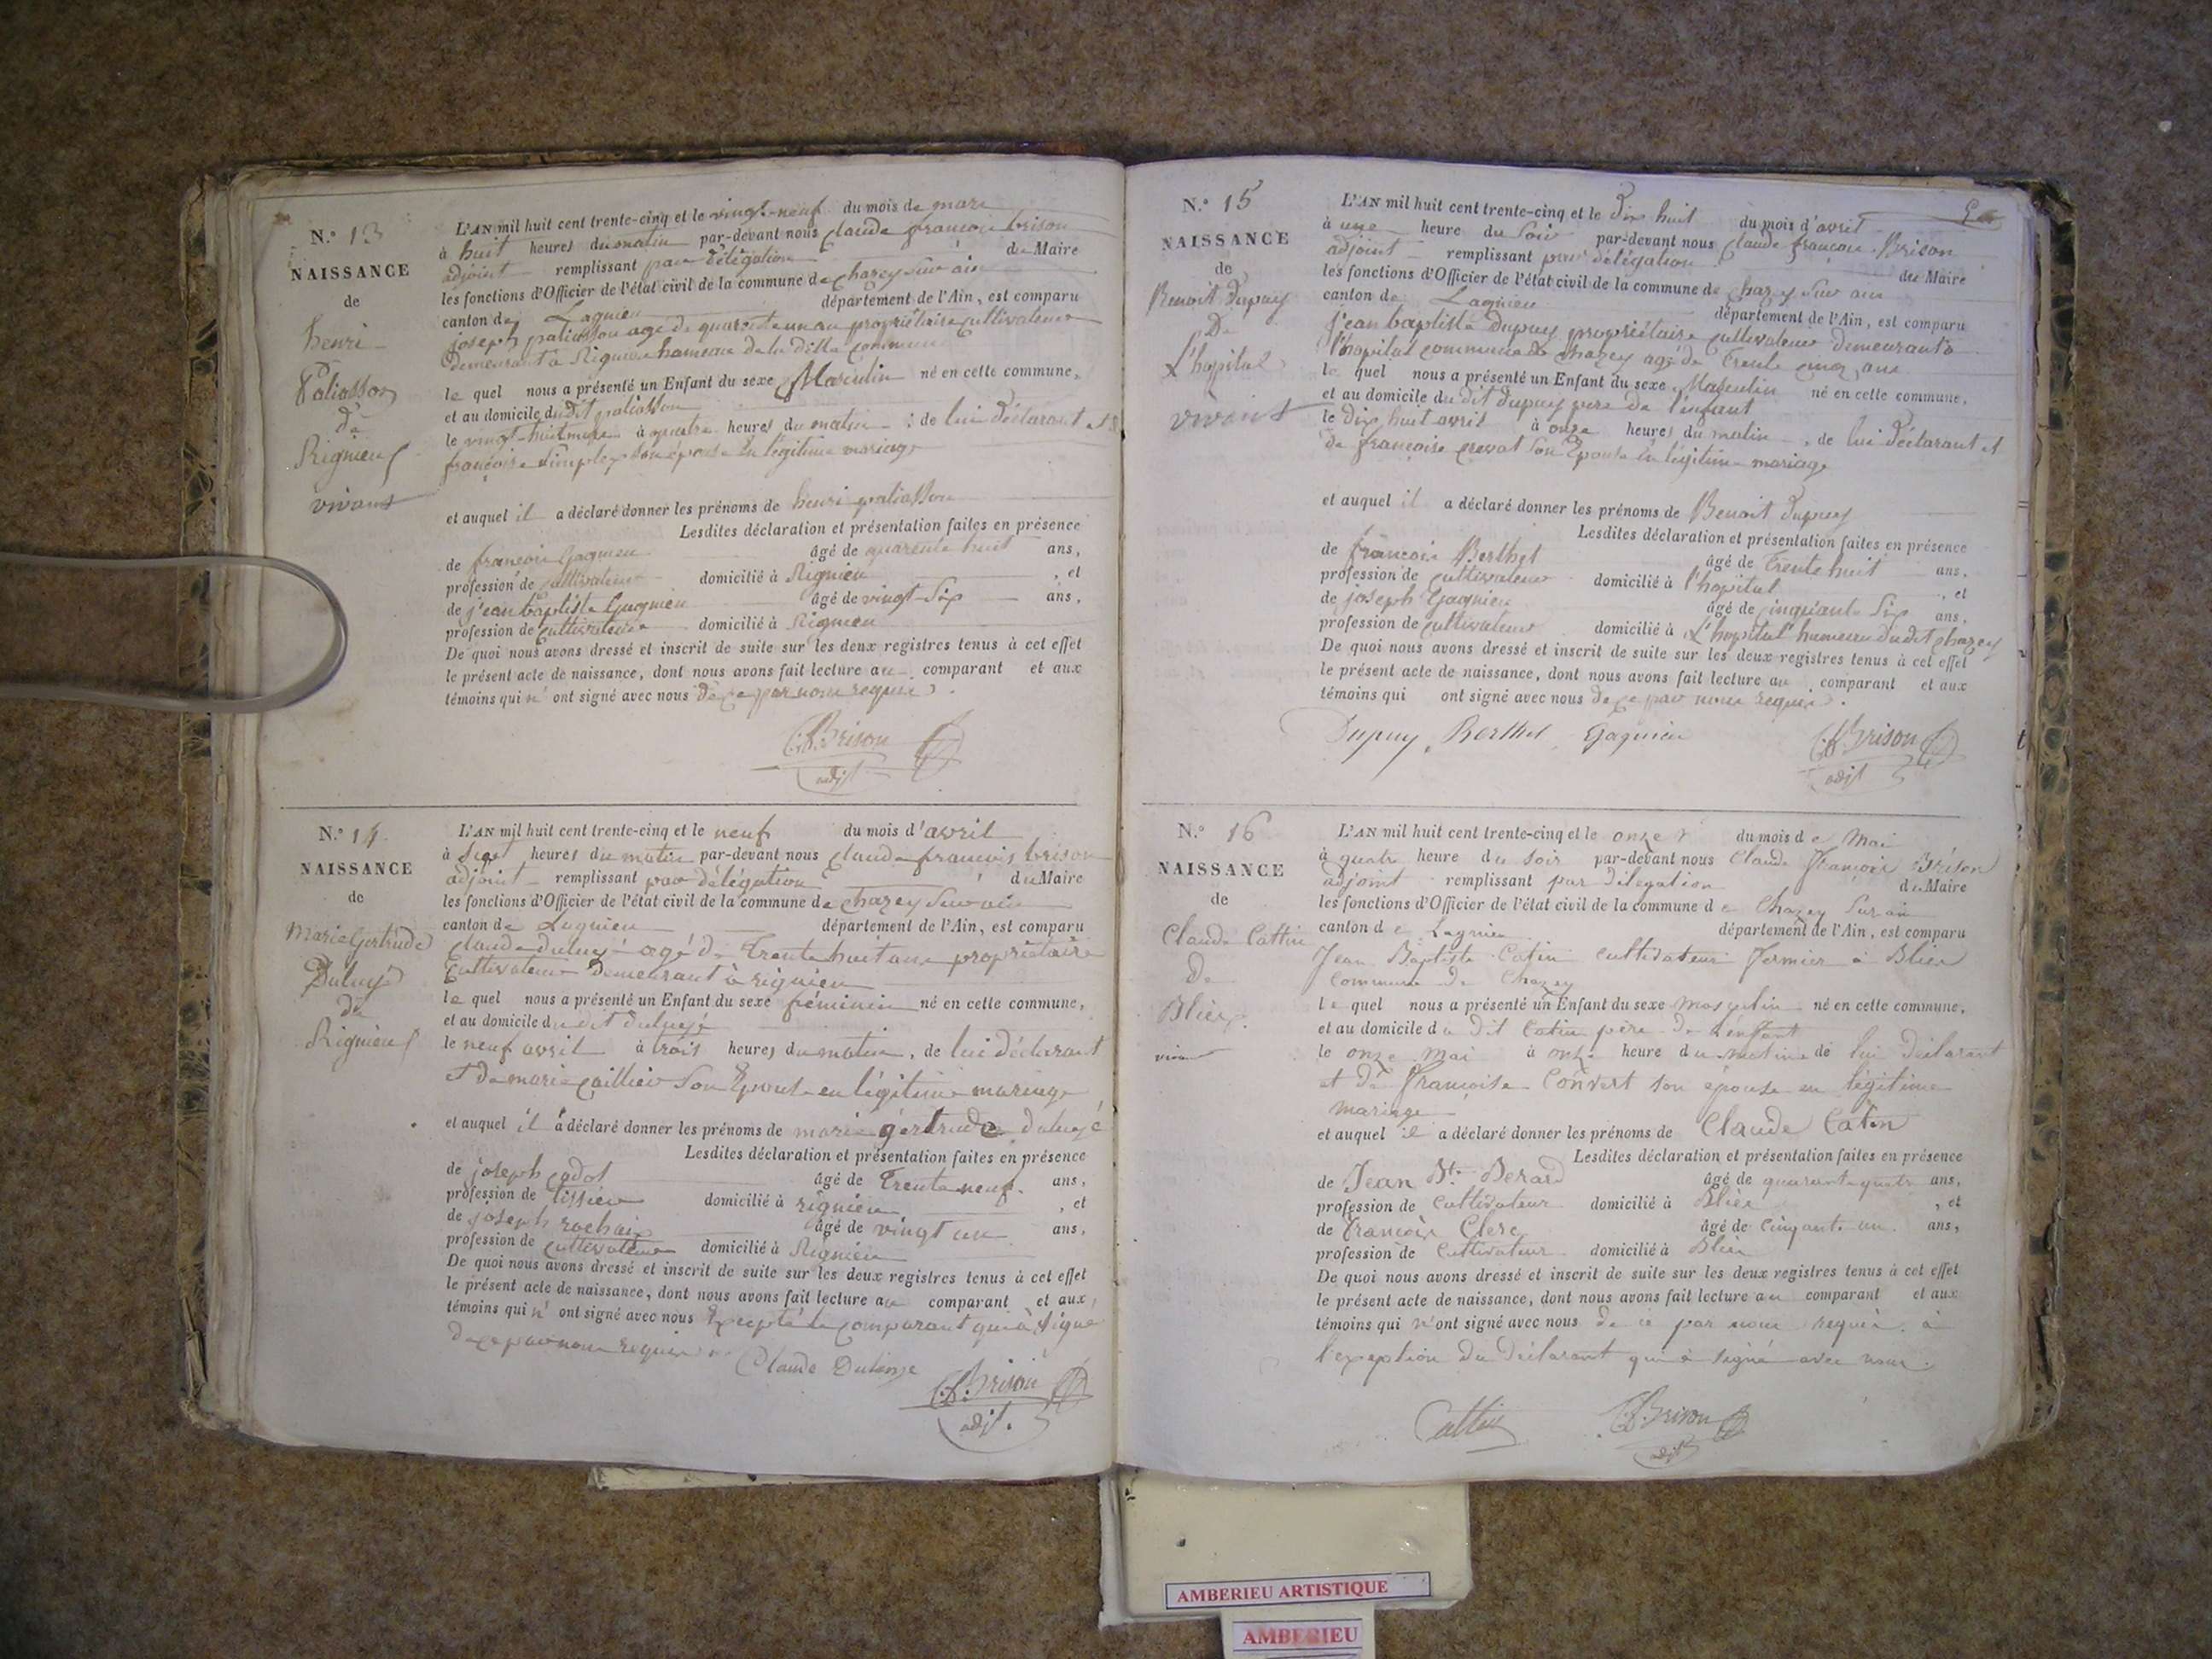 N.° 13
NAISSANCE
de
henri
Paliasson
de
Rignieu
vivant
L'AN mil huit cent trente-cinq et le vingt-neuf du mois de mars
à huit heures du matin par-devant nous Claude françois brison
adjoint remplissant par délégation du Maire
les fonctions d'Officier de l'état civil de la commune de chazey sur ain
canton de Lagnieu département de l'Ain, est comparu
joseph paliasson agé de quarante un an propriétaire cultivateur
demeurant à Rignieu hameau de la ditte commune
le quel nous a présenté un Enfant du sexe Masculin né en cette commune,
et au domicile du dit paliasson
le vingt-huit mars à quatre heures du matin : de lui déclarant et
françoise simplex son épouse en légitime mariage
et auquel il a déclaré donner les prénoms de henri paliasson
Lesdites déclaration et présentation faites en présence
de françois Gagnieu âgé de quarente huit ans,
profession de cultivateur domicilié à Rignieu , et
de jean baptiste Gagnieu âgé de vingt-six ans,
profession de cultivateur domicilié à Rignieu
De quoi nous avons dressé et inscrit de suite sur les deux registres tenus à cet effet
le présent acte de naissance, dont nous avons fait lecture au comparant et aux
témoins qui n' ont signé avec nous de ce par nous requis.
C.f. Brison
adjt
N.° 14
NAISSANCE
de
Marie Gertrude
de
Rignieu
L'AN mil huit cent trente-cinq et le neuf du mois d'avril
à sept heures du matin par-devant nous Claude françois brison
adjoint remplissant par délégation du Maire
les fonctions d'Officier de l'état civil de la commune de chazey sur ain
canton de Lagnieu département de l'Ain, est comparu
claude agé de trente huit ans propriétaire
cultivateur demeurant à rignieu
le quel nous a présenté un Enfant du sexe féminin né en cette commune,
et au domicile du dit
le neuf avril à trois heures du matin, de lui déclarant
et de marie son Epouse en légitime mariage
et auquel il a déclaré donner les prénoms de marie gertrude
Lesdites déclaration et présentation faites en présence
de joseph cadot âgé de trente neuf ans,
profession de tissier domicilié à rignieu , et
de joseph rochaix âgé de vingt un ans,
profession de cultivateur domicilié à Rignieu
De quoi nous avons dressé et inscrit de suite sur les deux registres tenus à cet effet
le présent acte de naissance, dont nous avons fait lecture au comparant et aux
témoins qui n' ont signé avec nous Excepté le comparant qui à signé
de ce par nous requis
Claude
C.f. Brison
adjt.
N.° 15
NAISSANCE
de
Benoit Dupuy
De
L'hopital
vivant
L'AN mil huit cent trente-cinq et le Dix huit du mois d'avril
à une heure du soir par-devant nous Claude françois Brison
adjoint remplissant par délégation du Maire
les fonctions d'Officier de l'état civil de la commune de chazey sur ain
canton de Lagnieu département de l'Ain, est comparu
jean baptiste dupuy propriétaire cultivateur demeurant à
l'hopital commune de chazey agé de trente cinq ans
le quel nous a présenté un Enfant du sexe Masculin né en cette commune,
et au domicile du dit dupuy pere de l'enfant
le dix huit avril à onze heures du matin, de lui déclarant et
de françoise crevat son Epouse en légitime mariage
et auquel il a déclaré donner les prénoms de Benoit dupuy
Lesdites déclaration et présentation faites en présence
de françois Berthet âgé de trente huit ans,
profession de cultivateur domicilié à l'hopital , et
de joseph Gagnieu âgé de cinquante six ans,
profession de cultivateur domicilié à L'hopital hameau du dit chazey
De quoi nous avons dressé et inscrit de suite sur les deux registres tenus à cet effet
le présent acte de naissance, dont nous avons fait lecture au comparant et aux
témoins qui ont signé avec nous de ce par nous requis.
Dupuy Berthet Gagnieu C.f. Brison
adjt
N.° 16
NAISSANCE
de
Claude Cattin
De
Blies
vivant
L'AN mil huit cent trente-cinq et le onze du mois de Mai
à quatre heure du soir par-devant nous Claude François Brison
adjoint remplissant par délégation du Maire
les fonctions d'Officier de l'état civil de la commune de Chazey sur ain
canton de Lagnieu département de l'Ain, est comparu
Jean Baptiste Catin cultivateur Fermier à Blies
commune de Chazey
le quel nous a présenté un Enfant du sexe Masculin né en cette commune,
et au domicile du dit Catin père de l'enfant
le onze Mai à onze heure du matin de lui déclarant
et de Françoise Convert son épouse en légitime
mariage
et auquel il a déclaré donner les prénoms de Claude Catin
Lesdites déclaration et présentation faites en présence
de Jean Bte Berard âgé de quarante quatre ans,
profession de Cultivateur domicilié à Blies , et
de François Clerc âgé de cinquante un ans,
profession de Cultivateur domicilié à Blies
De quoi nous avons dressé et inscrit de suite sur les deux registres tenus à cet effet
le présent acte de naissance, dont nous avons fait lecture au comparant et aux
témoins qui n'ont signé avec nous de ce par nous requis, à
l'exception du déclarant qui à signé avec nous.
Cattin C.f. Brison
adjt
AMBERIEU ARTISTIQUE
AMBERIEU